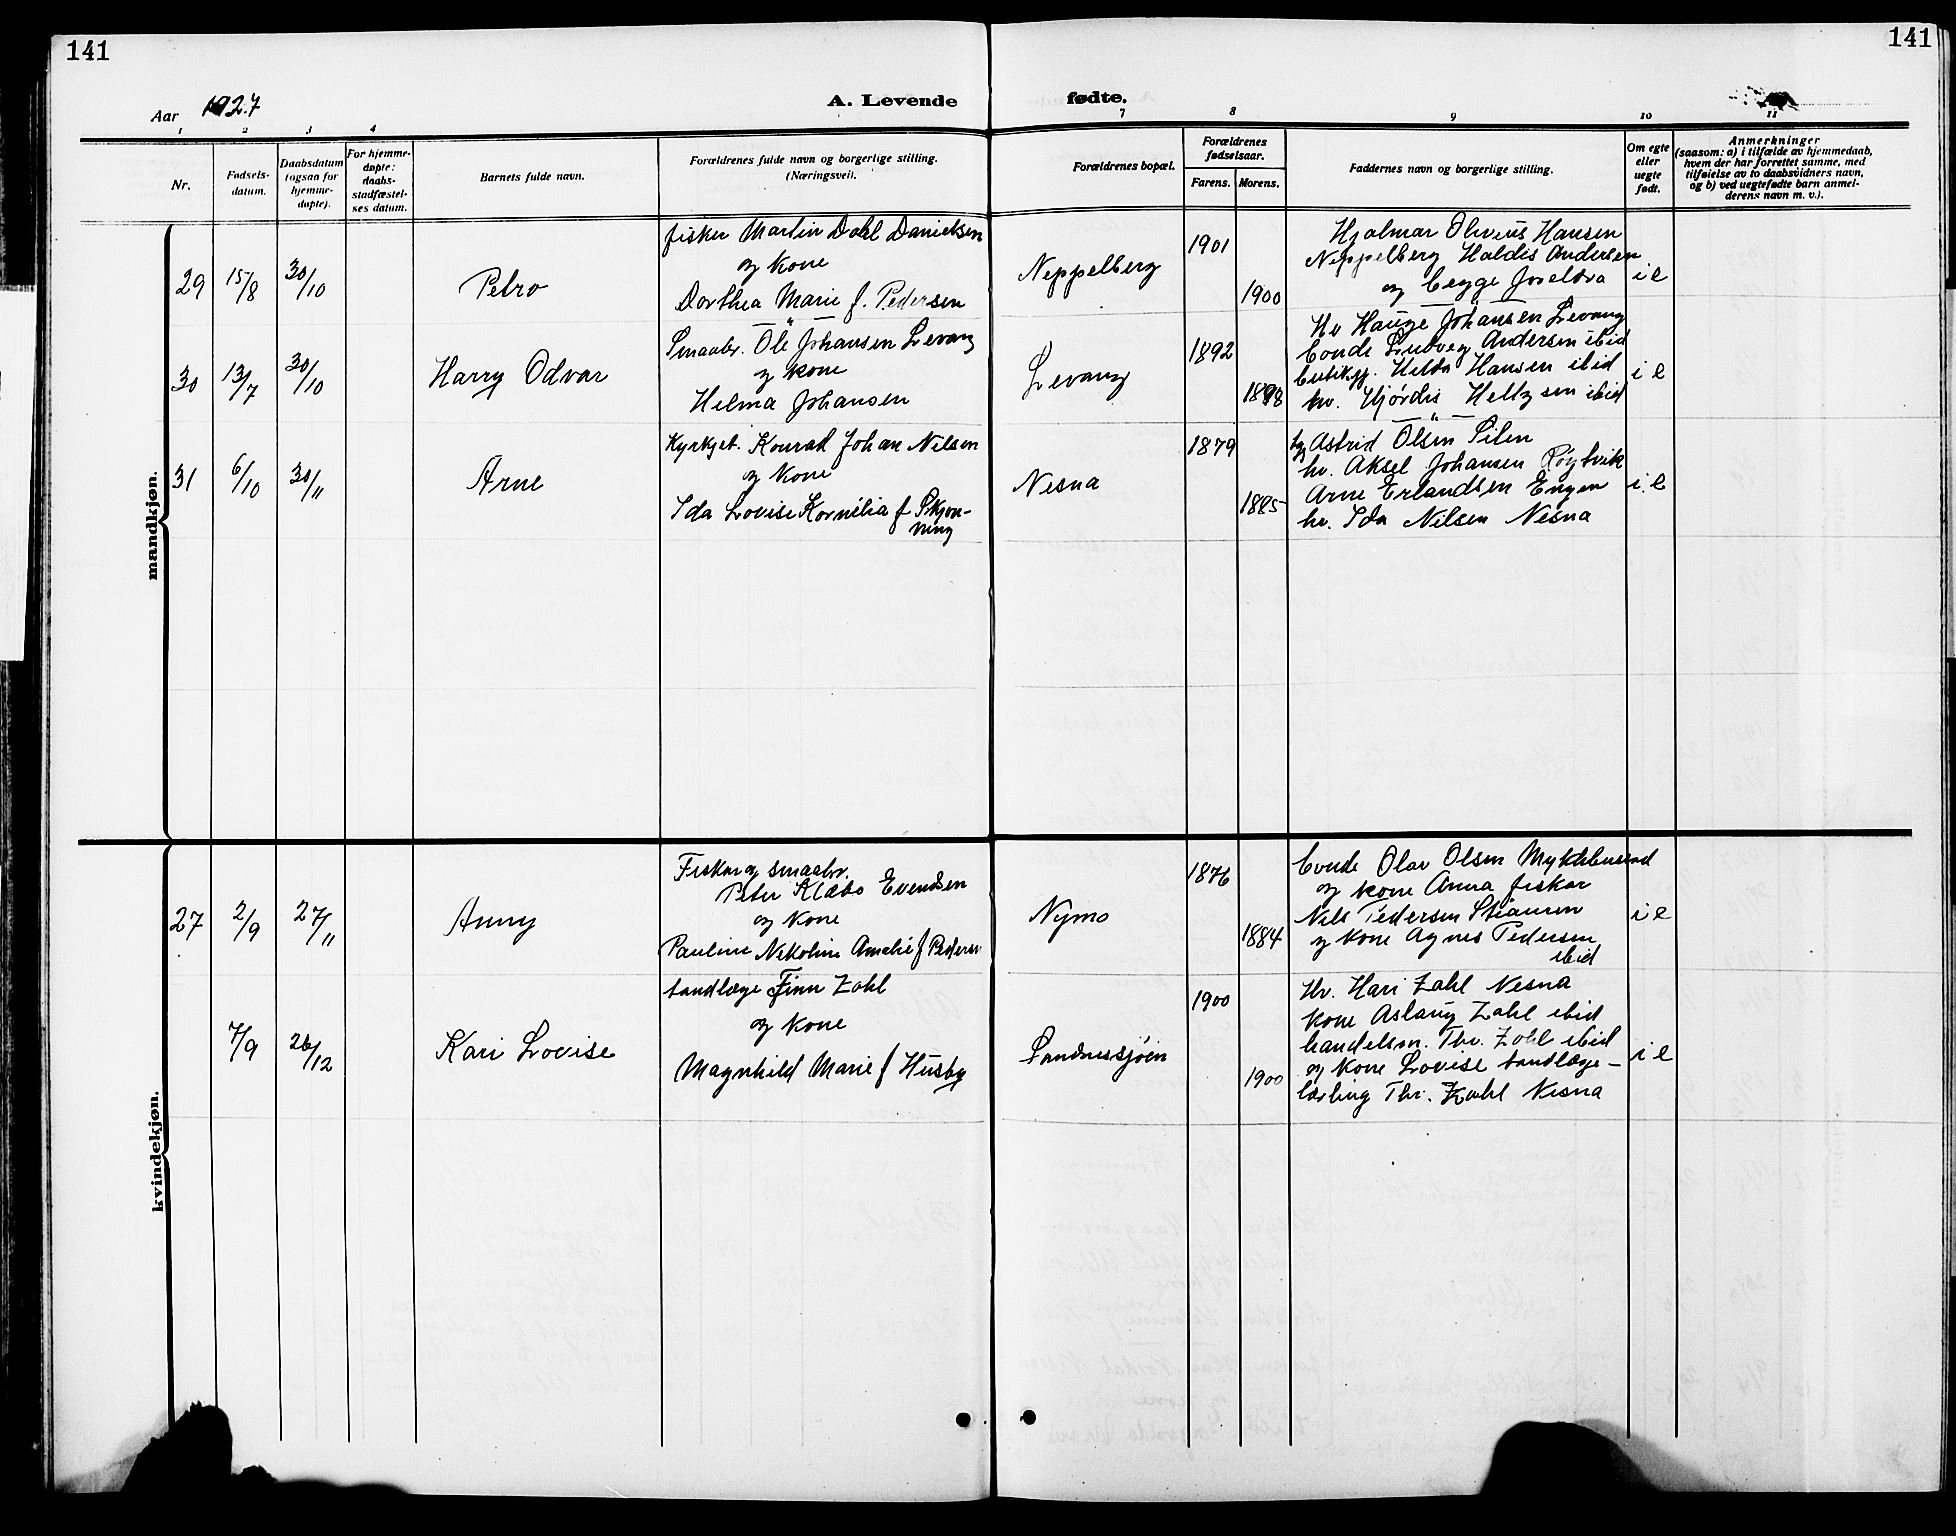 141
141
Aar 1927
A. Levende fødte.
1 2 3 4 7 8 9 10 11
Nr.
Fødsels-
datum.
Daabsdatum
(ogsaa for
hjemme-
døpte).
For hjemme-
døpte:
daabs-
stadfæstel-
ses datum.
Barnets fulde navn.
Forældrenes fulde navn og borgerlige stilling.
(Næringsvei).
Forældrenes bopæl.
Forældrenes
fødselsaar.
Farens. Morens.
Faddernes navn og borgerlige stilling.
Om egte
eller
uegte
født.
Anmerkninger
(saasom: a) i tilfælde av hjemmedaab,
hvem der har forrettet samme, med
tilføielse av to daabsvidners navn,
og b) ved uegtefødte barn anmel-
derens navn m. v.).
mandkjøn.
29 15/8 30/10 Petro
fisker Martin Dahl Danielsen
og kone
Dorthea Marie f. Pedersen
Neppelberg
1901
1900
Hjalmar Oliveus Hansen
Neppelberg Haldis Andersen
og begge foreldra
i e
30 13/7 30/10 Harry Odvar
Smaabr. Ole Johansen Levang
og kone
Helma Johansen
Levang
1892
1898
Hv Hauge Johansen Levang
bonde Ludveg Andersen ibid
butikgj. Hilda Hansen ibid
hv. Hjørdis Heltzen ibid
i e
31 6/10 30/11 Arne
Kyrkjet. Konrad Johan Nilsen
og kone
Ida Lovise Kornelia f Skjon-
ning
Nesna
1879
1885
Astrid Olsen Silen
hv. Aksel Johansen Røytvik
Arne Erlandsen Engen
hv. Ida Nilsen Nesna
i e
kvindekjøn.
27 2/9 27/11 Anny
Fiskar og smaabr.
Peter Klæbo Evendsen
og kone
Pauline Nikoline Amalie f Pedersen
Nymo
1876
1884
bonde Olav Olsen Myklebustad
og kone Anna fiskar
Nils Pedersen
og kone Agnes Pedersen
ibid
i e
7/9 26/12 Kari Lovise
tandlæge Finn Zahl
og kone
Magnhild Marie f Husby
Sandnessjøen
1900
1900
Hv. Hari Zahl Nesna
kone Aslaug Zahl ibid
handelsm. Thv. Zahl ibid
og kone Lovise tandlæge-
lærling Thv. Zahl Nesna
i e